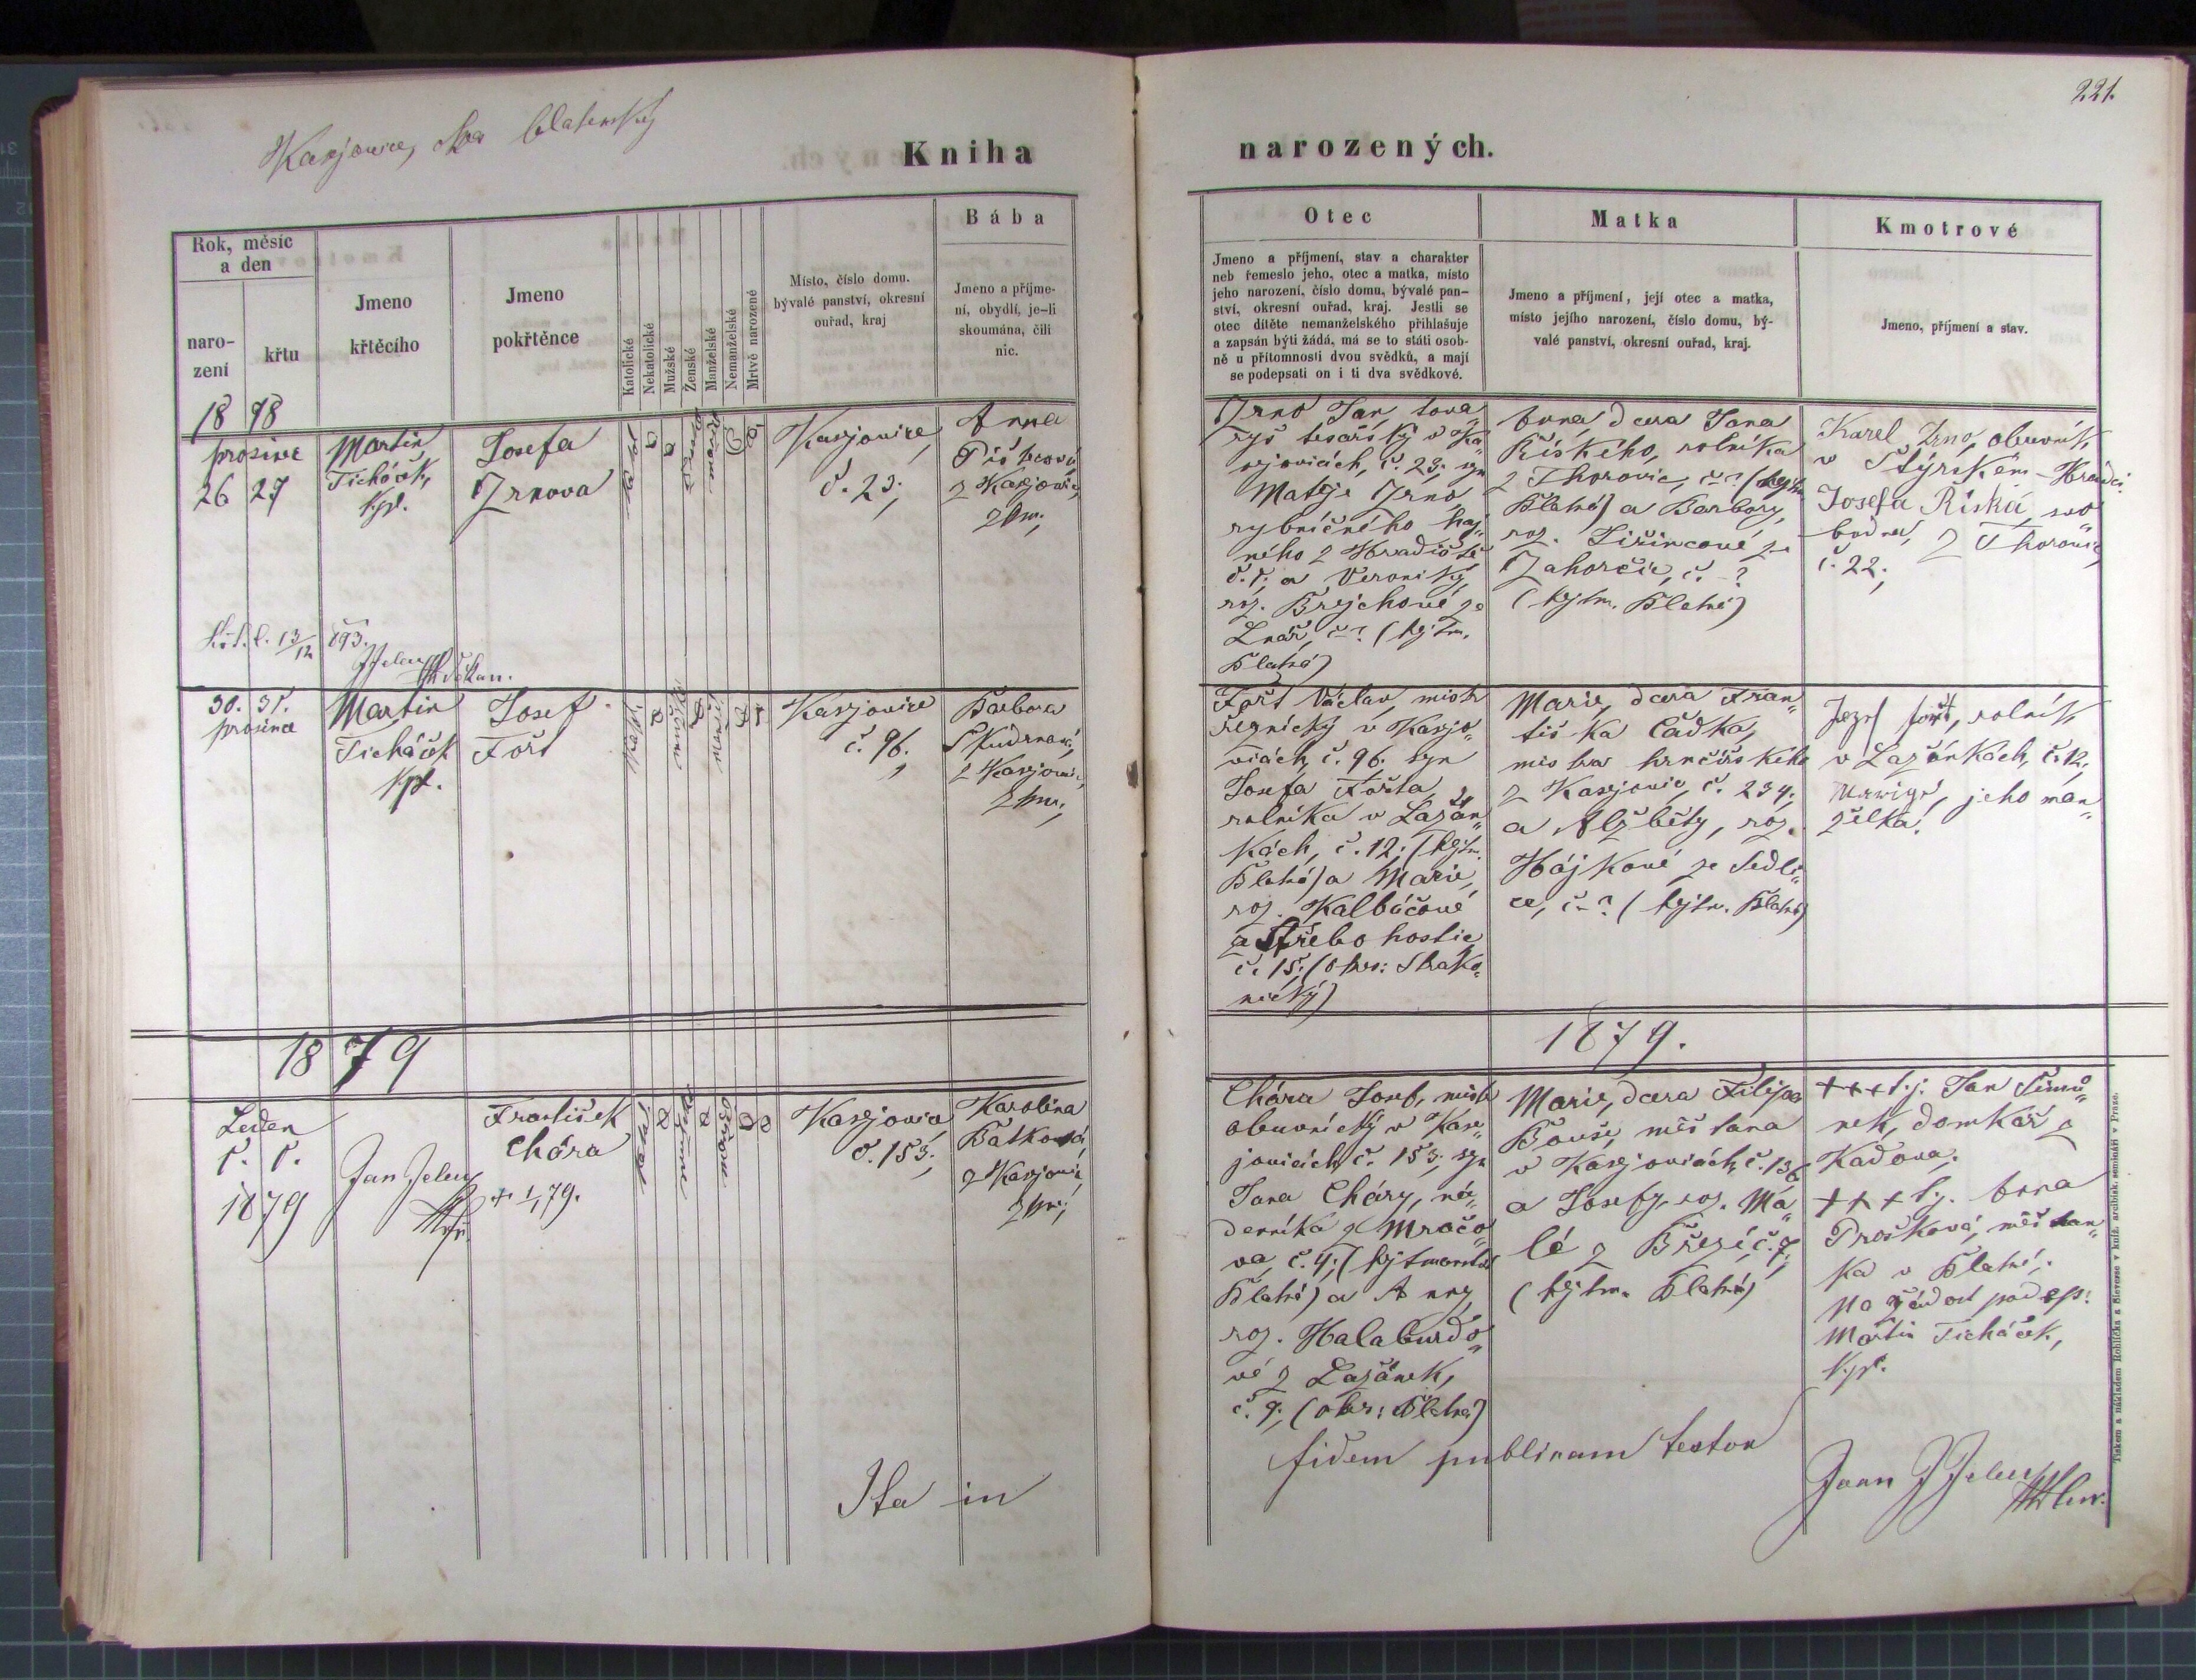 221.
Kniha
narozených.
Rok, měsíc
a den
naro-
zení
křtu
Jmeno
křtěcího
Jmeno
pokřtěnce
Katolické
Nekatolické
Mužské
Ženské
Manželské
Nemanželské
Mrtvě narozené
Místo, číslo domu.
bývalé panství, okresní
ouřad, kraj
Bába
Jmeno a příjme-
ní, obydlí, je-li
skoumána, čili
nic.
Otec
Jmeno a příjmení, stav a charakter
neb řemeslo jeho, otec a matka, místo
jeho narození, číslo domu, bývalé pan-
ství, okresní ouřad, kraj. Jestli se
otec dítěte nemanželského přihlašuje
a zapsán býti žádá, má se to státi osob-
ně u přítomnosti dvou svědků, a mají
se podepsati on i ti dva svědkové.
Matka
Jmeno a příjmení, její otec a matka,
místo jejího narození, číslo domu, bý-
valé panství, okresní ouřad, kraj.
Kmotrové
Jmeno, příjmení a stav.
1878
prosince
26 27
Martin
Ticháček,
kpl.
Josefa
Zrnova
Kasejovice
č. 23;
Anna
z Kasejovic,
Zrno Jan, tova
ryš tesařský v Ka
sejovicách, č. 23; syn
Matěje Zrno,
rybničného haj
ného z Hradiště
č. 1; a Veroniky,
roz. Brejchové ze
Lnář, č ? (hejtm.
Blatná)
Anna, dcera Jana
Řískeho, rolníka
z Thorovic, č ? (hejtm
Blatná) a Barbory,
roz. Jiřincové ze
Zahorčic, č. - ?
(hejtm. Blatná)
Karel Zrno, obuvník
v Štýrském-Hradci.
Josefa Říská, svo
bodná, z Thorovic
č. 22;
30. 31.
prosince
Martin
Ticháček
kpl.
Josef
Fořt
Kasejovice
č. 96.
Barbora
z Kasejovic,
Fořt Václav, mistr
řeznický v Kasejo
vicích, č. 96. syn
Josefa Fořta,
rolníka v Lažán
kách, č. 12; (hejtm.
Blatná) a Marie,
roz. Kalbáčové
ze Střebohostic
č. 15; (okres: Strako
nický)
Marie, dcera Fran
tiška Čadka,
mistra hrnčířského
z Kasejovic, č. 234;
a Alžběty, roz.
Hájkové ze Sedli
ce, č - ? (hejtm. Blatná)
Jozef Fořt, rolník
v Lažánkách, č. 12;
Marige, jeho man
želka.
1879
1879.
Leden
1. 1.
1879
Jan Jelen
František
Chára
+ 1/1 79.
Kasejovice
č. 153;
Karolina
Batková
z Kasejovic,
Chára Josef, mistr
obuvnický v Kase
jovicích č. 153; syn
Jana Cháry, ná
denníka z Mračo
va, č. 4; (hejtmanství
Blatná) a Anny,
roz. Halaburdo
vé z Lažánek,
č. 9; (okr: Blatná)
Marie, dcera Filipa
Bouše, měšťana
v Kasejovicích, č. 136
a Josefy, roz. Ma
lé z Březí, č. 7;
(hejtm. Blatná)
+++ t.j. Jan Šimů
nek, domkář z
Kadova.
+++ t.j. Anna
Prošková, měšťan
ka v Blatné;
Na žádost podeps:
Martin Ticháček,
kpl.
Ita in fidem publicam testor
Joan Jelen
Tiskem a nákladem Rohlíčka a Sieversse v kníž. arcibisk. semináři v Praze.